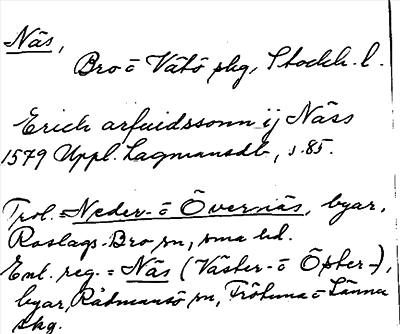 Näs,
Bro o Vätö skg, Stockh. l.
Erich arfuidssonn ij Näss
1579 Uppl. Lagmansdb, s. 85.
Trol. = Neder- o Övernäs, byar,
Roslags-Bro sn, sma hd.
Enl. reg. = Näs (Väster- o Öster-),
byar, Rådmansö sn, Frötuna o Länna
skg.